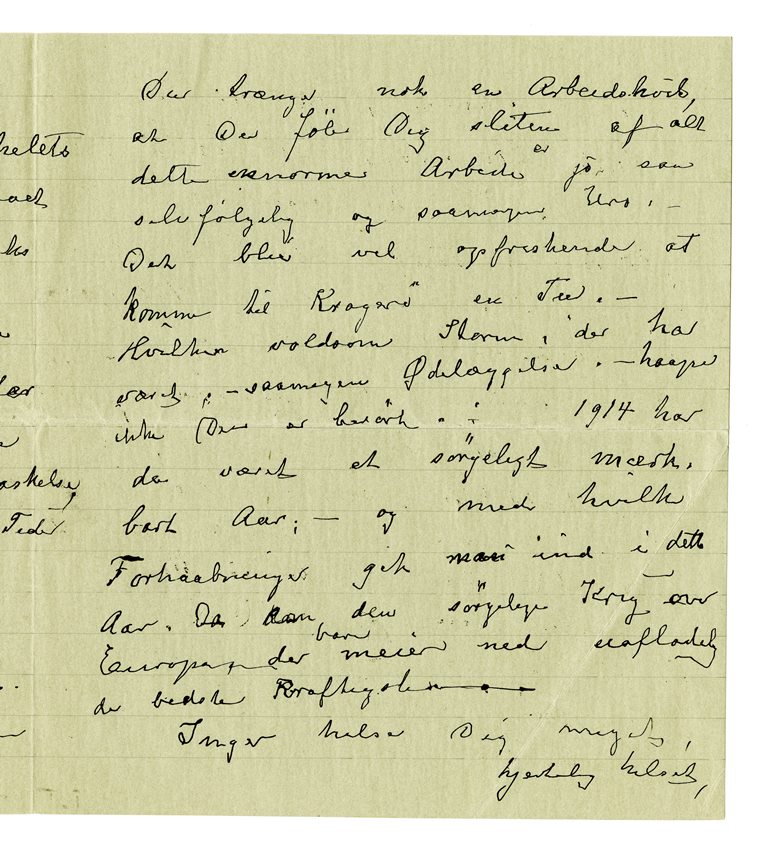 kelets
Du trænger nok en Arbeidshvile,
at Du föle Dig sliten af alt
dette enorme Arbeide er jo saa
selvfølgelig og saamegen Uro. —
Det blir vel opfriskende at
komme til Kragerö en Tid. —
Hvilken voldsom Storm, der har
været, — saamegen Ødelæggelse. — haaper
ikke Du er berört. 1914 har
da været et sörgeligt mærk-
bart Aar; — og med hvilke
Forhaabninger gik man ind i dette
Aar. Da kom den sörgelige Krig over
Europa, der meier bare ned uafladelig
de bedste Kraftigste
Inger hilser Dig meget,
hjertelig hilset,